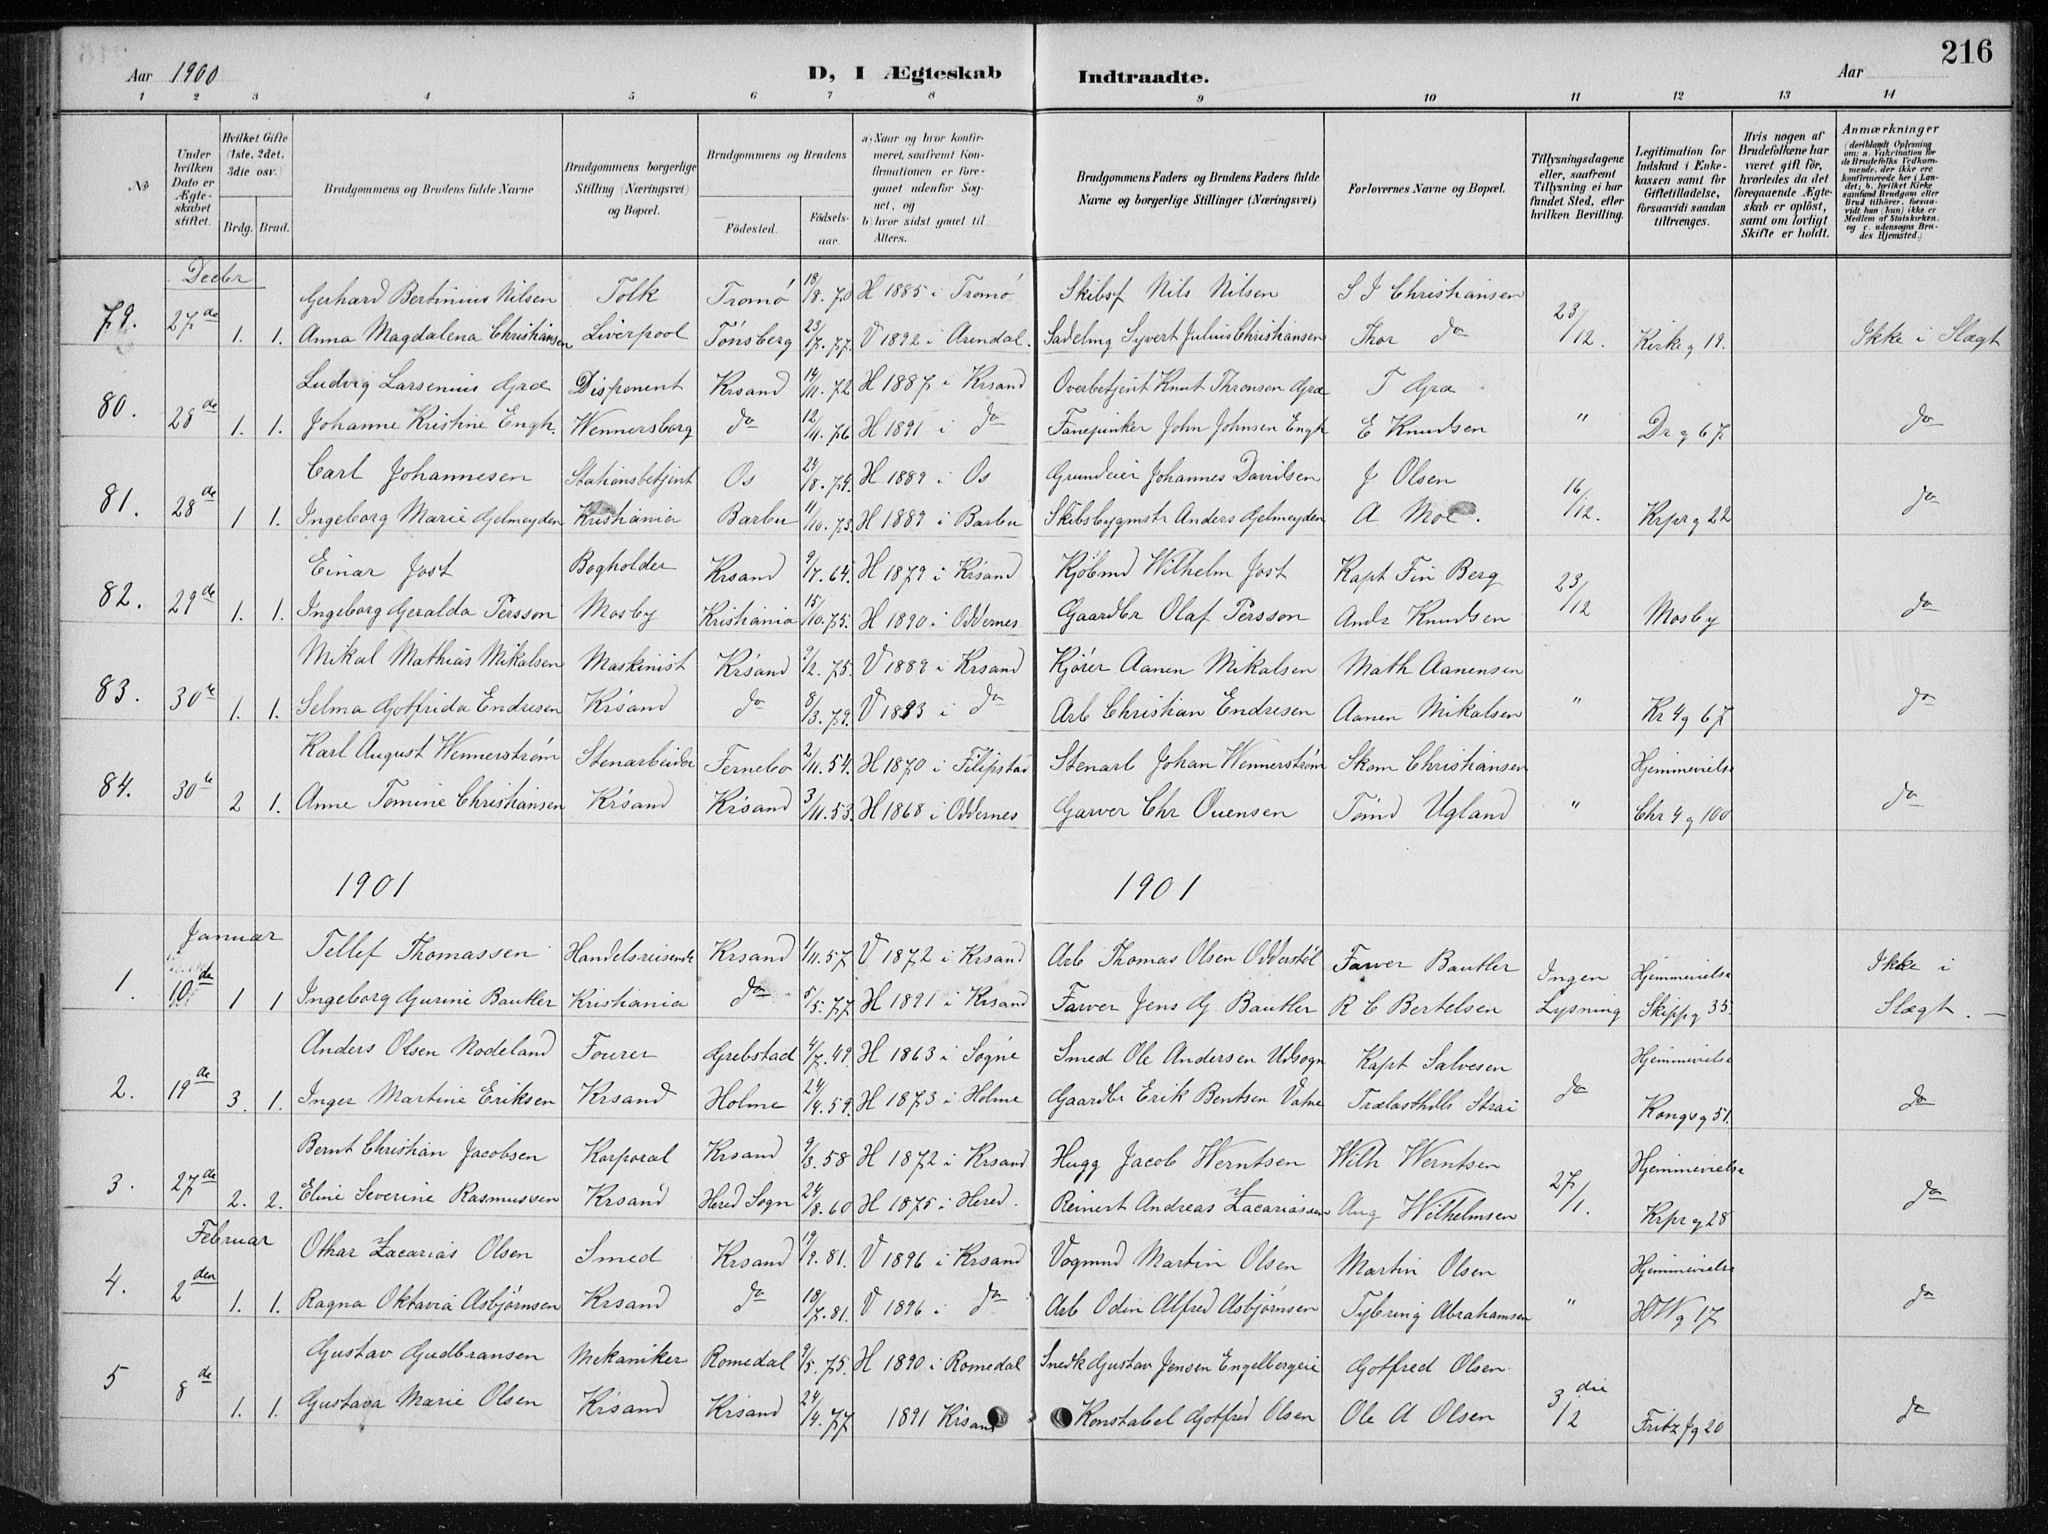 216
Aar 1900 D, I Ægteskab Indtraadte. Aar
1 2 3 4 5 6 7 8 9 10 11 12 13 14
№
Under hvilken Dato er Ægteskabet stiftet.
Hvilket Gifte (1ste, 2det, 3die osv.)
Brdg. Brud.
Brudgommens og Brudens fulde Navne
Brudgommens borgerlige Stilling (Næringsvei) og Bopæl.
Brudgommens og Brudens
Födested. Födselsaar.
a) Naar og hvor konfirmeret, saafremt Konfirmationen er foregaaet udenfor Sognet, og
b) hvor sidst gaaet til Alters.
Brudgommens Faders og Brudens Faders fulde Navne og borgerlige Stillinger (Næringsvei)
Forlovernes Navne og Bopæl.
Tillysningsdagene eller, saafremt Tillysning ei har fundet Sted, efter hvilken Bevilling.
Legitimation for Indskud i Enkekassen samt for Giftetilladelse, forsaavidt saadan tiltrænges.
Hvis nogen af Brudefolkene har været gift för, hvorledes da det foregaaende Ægteskab er oplöst, samt om lovligt Skifte er holdt.
Anmærkninger (deriblandt Oplysning om: a. Vakcination for de Brudefolks Vedkommende, der ikke ere konfirmerede her i Landet; b. hvilket Kirkesamfund Brudgom eller Brud tilhörer, forsaavidt han (hun) ikke er Medlem af Statskirken, og c. udensogns Brudes Hjemsted.)
Decbr
Gerhard Bertinius Nilsen Tolk Tromö 18/8.70 H 1885 i Tromö Skibsf Nils Nilsen S J Christiansen
79. 27de 1. 1. Anna Magdalena Christiansen Liverpool Tönsberg 23/7.77. V 1892 i Arendal. Sadelmg Syvert Julius Christiansen Thor do 23/12. Kirkeg 19. Ikke i Slægt
Ludvig Larsenius Græ Disponent Krsand 14/11.72 H 1887 i Krsand Overbetjent Knut Thronsen Græ T Græ
80. 28de 1. 1. Johanne Kristine Engh. Wennersborg do 12/11.76 H 1891 i do John Johnsen Engh E Knudsen " Drg 67 do
Carl Johannesen Stationsbetjent Os 24/8.79. H 1889 i Os Grundeier Johannes Davidsen J Olsen
81. 28de 1 1. Ingeborg Marie Gjelmeyden Kristiania Barbu 11/10.73 H 1889 i Barbu Skibsbygmstr Anders Gjelmeyden A Moe. 16/12. Krprg 22 do
Einar Jost Bogholder Krsand 9/7.64. H 1879 i Krsand Kjöbmd Wilhelm Jost Kapt Fin Berg
82. 29de 1. 1. Ingeborg Geralda Persson Mosby Kristiania 15/10.75. H 1890 i Oddernes Gaardbr Olaf Persson Andr Knudsen 23/12 Mosby do
Mikal Mathias Mikalsen Maskinist Krsand 9/2.75. V 1889 i Krsand Kjörer Aanen Mikalsen Math Aanensen
83. 30te 1. 1. Selma Gotfrida Endresen Krsand do 8/3.79. V 1893 i do Arb Christian Endresen Aanen Mikalsen " Kr 4g 67 do
Karl August Wennerström Stenarbeider Fernebo 2/11.54. H 1870 i Filipstad Stenarb Johan Wennerström Skom Christiansen Hjemmevielse
84. 30te 2 1. Anne Tomine Christiansen Krsand Krsand 3/11.53. H 1868 i Oddernes Garver Chr Ouensen Tömd Ugland " Chr 4g 100 do
1901 1901
Januar
Tellef Thomassen Handelsreisende Krsand 1/11.57 V 1872 i Krsand Arb Thomas Olsen Odderstöl Farver Bautler Ingen Hjemmevielse Ikke i
1. 10de 1 1 Ingeborg Gurine Bautler Kristiania do 5/5.77 H 1891 i Krsand Farver Jens G Bautler R C Bertelsen Lysning Skippg 35. Slægt.
Anders Olsen Nodeland Fourer Grebstad 4/7.49. H 1863 i Søgne Smed Ole Andersen Udsogn Kapt Salvesen Hjemmevielse
2. 19de 3. 1. Inger Martine Eriksen Krsand Holme 24/4.59. H 1873 i Holme Gaardbr Erik Bentsen Vatne Trælasthdls Strai do Kongsg 51. do
Bernt Christian Jacobsen Korporal Krsand 9/3.58 H 1872 i Krsand Hugg Jacob Werntsen Wilh Werntsen Hjemmevielse
3. 27de 2. 2. Eline Severine Rasmussen Krsand Hered Sogn 24/8.60 H 1875 i Hered. Reinert Andreas Zacariassen Aug Wilhelmsen 27/1. Krprg 28 do
Februar
Othar Zacarias Olsen Smed Krsand 19/9.81. V 1896 i Krsand Vogmnd Martin Olsen Martin Olsen Hjemmevielse
4. 2den 1. 1. Ragna Oktavia Asbjørnsen Krsand do 18/7.81. V 1896 i do Arb Odin Alfred Asbjørnsen Tybring Abrahamsen " HWg 17 do
Gustav Gudbransen Mekaniker Romedal 9/5.75. H 1890 i Romedal Gustav Jensen Gotfred Olsen
5 8de 1. 1. Gustava Marie Olsen Krsand Krsand 24/4.77 1891 Krsand Konstabel Gotfred Olsen Ole A Olsen 3die/2 Fritz Jg 20 do